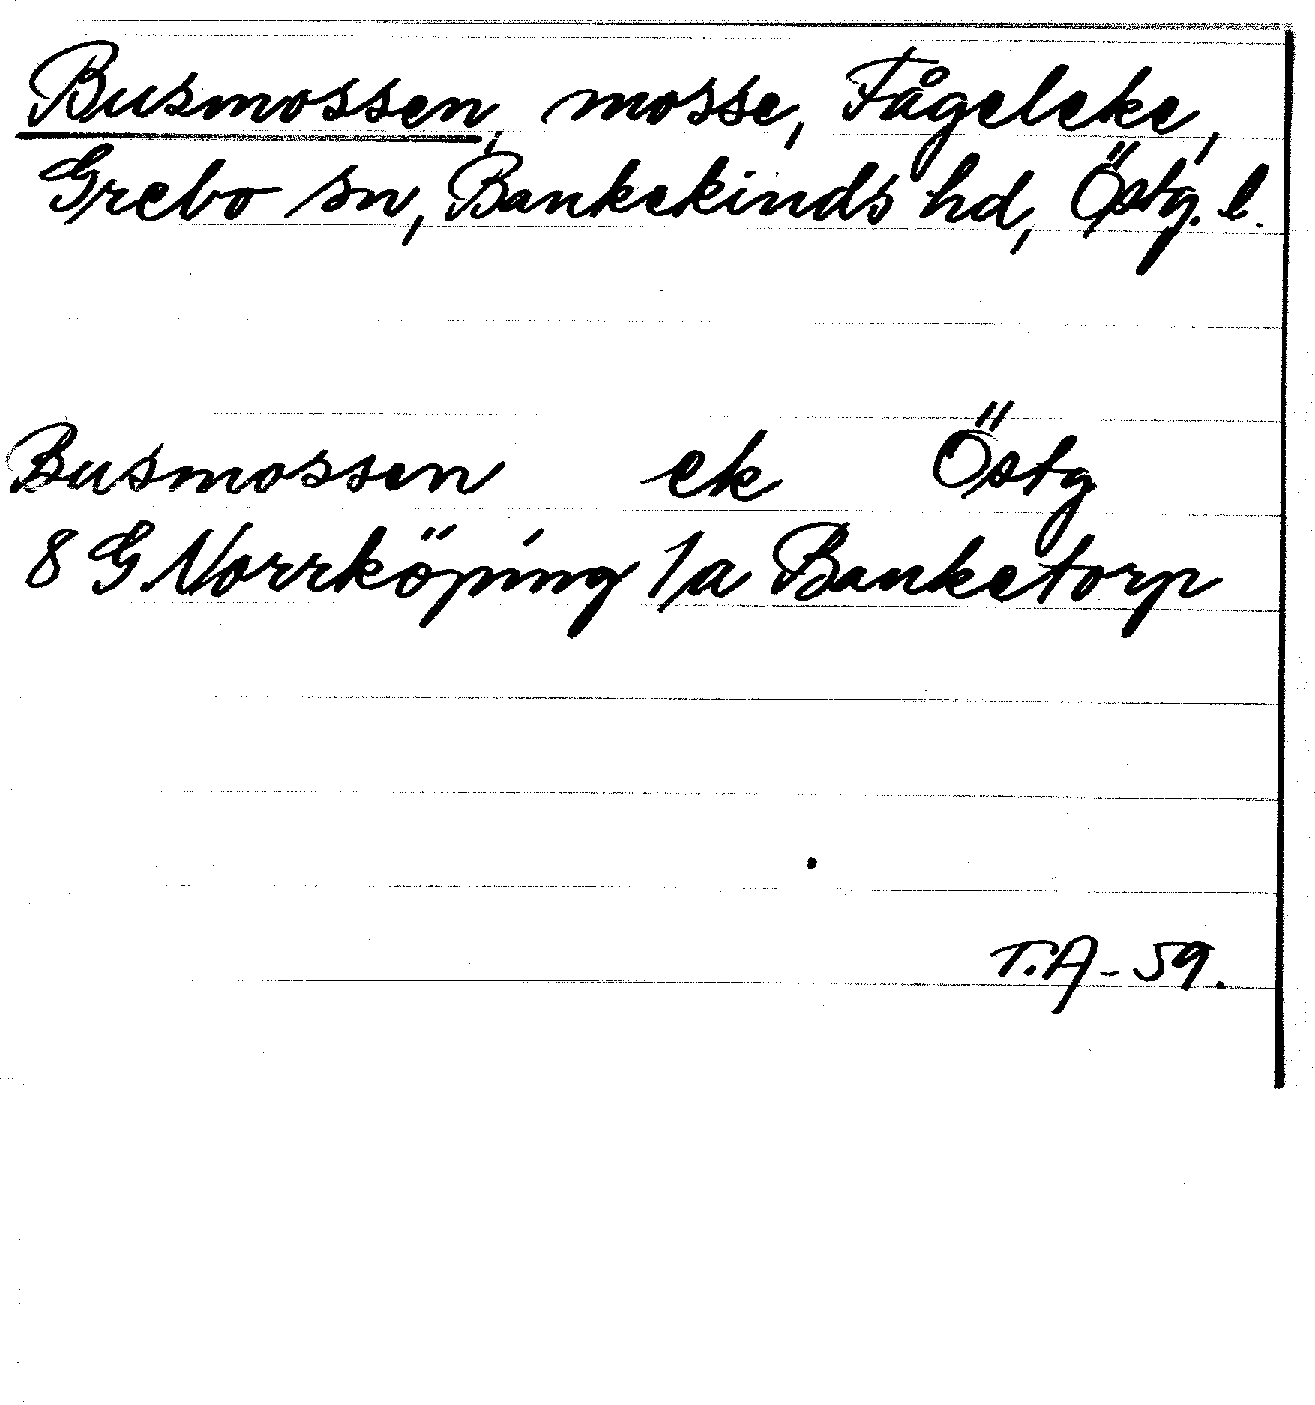 Busmossen, mosse, Fågeleke,
Grebo sn, Bankekinds hd, Östg. l.
Busmossen ek Östg
8 G Norrköping 1a Banketorp
T.A - 59.